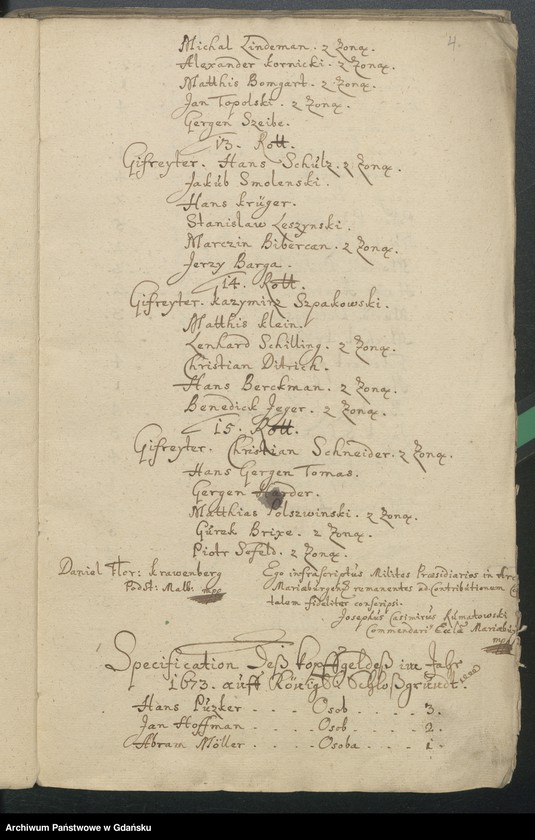 4.
Michal Lindeman. z Zoną.
Alexander Kornicki. z Zoną.
Matthis Bomgart. z Zoną.
Jan Topolski. z Zoną.
Gergen Szeibe.
13. Rott.
Gifreyter. Hans Schulz. z Zoną.
Jakub Smolenski.
Hans Krüger.
Stanisław Leszynski.
Marczin Bibercan. z Zoną.
Jerzy Barga.
14. Rott.
Gifreyter. Kazymirz Szpakowski.
Matthis Klein.
Lenhard Schilling. z Zoną.
Christian Ditrich.
Hans Berckman. z Zoną.
Benedick Jeger. z Zoną.
15. Rott.
Gifreyter. Christian Schneider. z Zoną.
Hans Gergen Tomas.
Gergen Harder.
Matthias Polszwinski. z Zoną.
Gürek Brixe. z Zoną.
Piotr Sefeld. z Zoną.
Daniel Flor: Krawenberg
Podst: Malb: mpp
Ego infrascriptus Milites Præsidiarios in Arce
Mariæburgensi remanentes ad Contributionem
talem fideliter conscripsi.
Josephus Casimirus Rumatowski
Commendari Eccla Mariæbur
mpp
Specification Deß Kopffgeldeß im Jahr
1673. auff Königl. Schloßgrundt.
Hans Puzker . . . . Osob . . . . 3.
Jan Hoffman . . . . Osob . . . . 2.
Abram Möller . . . . Osoba . . . . 1.
Archiwum Państwowe w Gdańsku